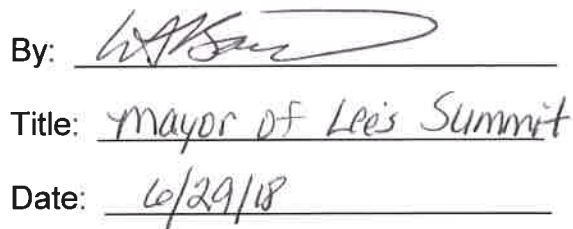 By:
Title: Mayor of Lee's Summit
Date: 6/29/18